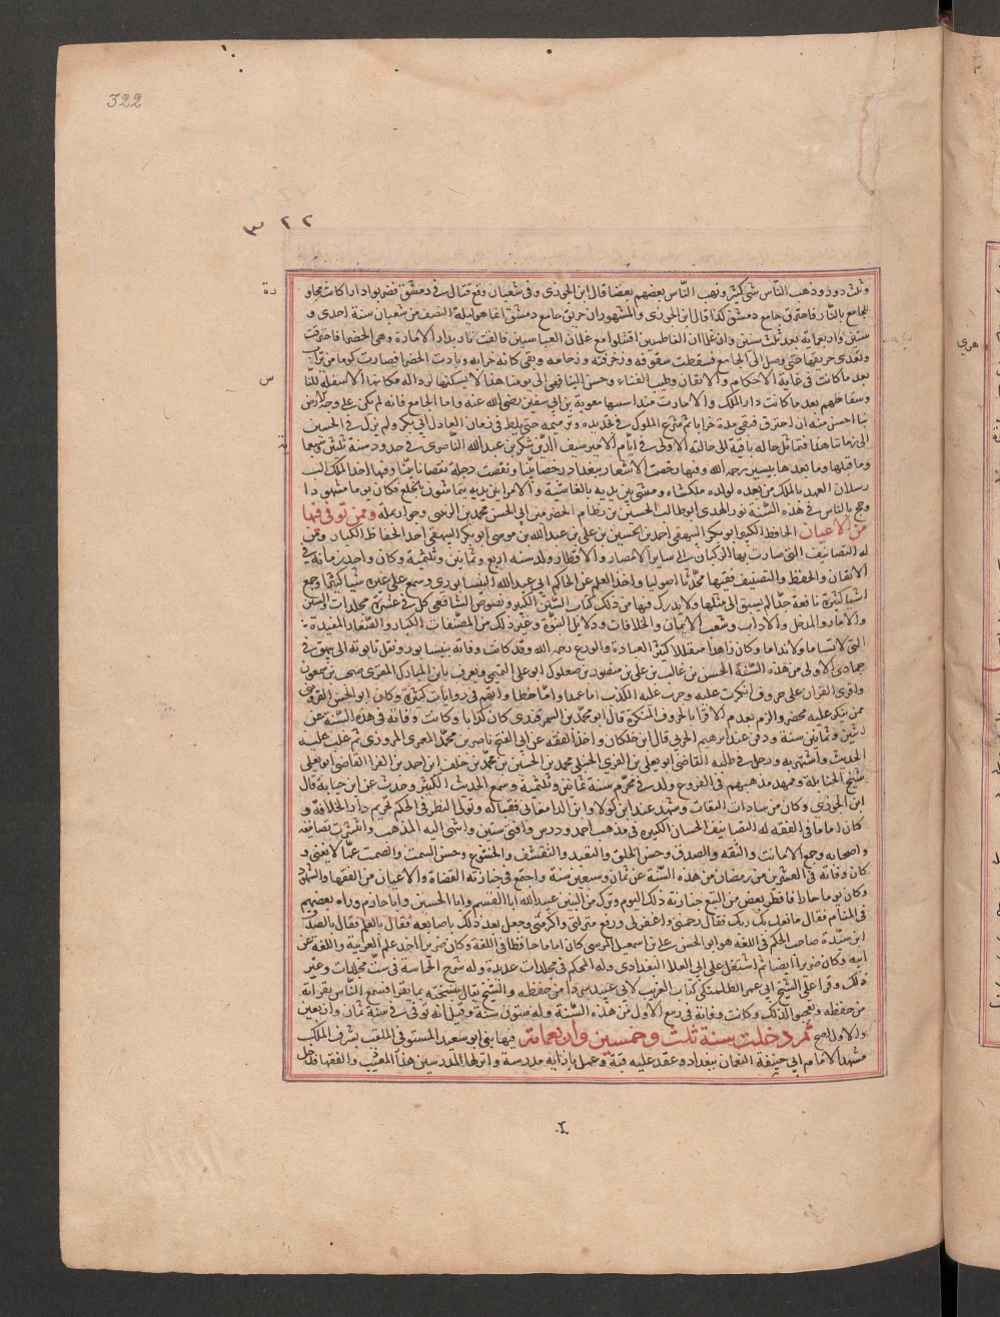 322
٣٢٢
وثلث دور وذهب الناس شئ كثير ونهب الناس بعضهم بعضا قال ابن الجوزى وفى شعبان وقع قتال فى دمشق فضربوا دارا كانت مجاورة
للجامع بالنار فاحترق جامع دمشق كذا قال ابن الجوزى والمشهور ان حريق جامع دمشق انما هو ليلة النصف من شعبان سنة احدى و
ستين واربعماية بعد ثلث سنين وان غلمان الفاطميين اقتتلوا مع غلمان العباسيين فالقيت نار بدار الامارة وهى الخضرا فاحترقت
وتعدى حريقها حتى وصل الى الجامع فسقطت سقوفه وزخرفته ورخامه وبقى كانه خرابه وبادت الخضرا فصارت كوما من تراب
بعد ما كانت فى غاية الاحكام والاتقان وطيب الفناء وحسن البنا فهى الى يومنا هذا لا يسكنها لرداله مكانها الا سفلة الناس
وسقاطهم بعد ما كانت دار الملك والامارت منذ اسسها معوية بن ابى سفين رضى الله عنه واما الجامع فانه لم يكن على وجه الارض
شيا احسن منه ان احترق فبقى مدة خرابا ثم شرع الملوك فى تجديده وترميمه حتى بلط فى زمان العادل ابى بكر ولم يزل فى تحسين
الى زماننا هذا فتماثل حاله باقية الى حالته الاولى فى ايام الامير سيف الدين تنكز بن عبد الله الناصرى فى حدود سنة ثلثين وسبعماية
وما قبلها وما بعدها بيسير رحمه الله وفيها رخصت الاسعار ببغداد رخصا بينا ونقصت دجلة نقصانا بينا وفيها اخذ الملك الب
رسلان العهد بالملك من بعده لولده ملكشاه ومشى بين يديه بالغاشية والامرا بين يديه يتماشون بالخلع فكان يوما مشهودا
وحج بالناس فى هذه السنة نور الهدى ابو طالب الحسين بن نظام الحضرمين ابى الحسن محمد بن الزينبى وجاور بمكه وممن توفى فيها
من الاعيان الحافظ الكبير ابو بكر البيهقى احمد بن الحسين بن على بن عبد الله بن موسى ابو بكر البيهقى احد الحفاظ الكبار ومن
له التصانيف التى صارت بها الركبان الى ساير الامصار والاقطار ولد سنه اربع وثمانين وثلثمية وكان واحد زمانه فى
الاتقان والحفظ والتصنيف فقيها محدثا اصوليا واخذ العلم عن الحاكم ابى عبد الله النيسابورى وسمع على غيره شيا كثيرا وجمع
اشيا كثيرة نافعة جدا لم يسبق الى مثلها ولا يدرك فيها من ذلك كتاب السنن الكبير ونصوص الشافعى كل فى عشرة مجلدات والسنن
والاثار والمدخل والاداب وشعب الايمان والخلافات ودلايل النبوة وغير ذلك من المصنفات الكبار والصغار المفيدة
التى لا تساما ولا تدانا وكان زاهدا متقللا كثير العبادة والورع رحمه الله وقد كانت وفاته بنيسابور ونقل تابوته الى بيهق فى
جمادى الاولى من هذه السنة الحسن بن غالب بن على بن منصور بن صعلوك ابو على التميمى ويعرف بابن المبارك المقرى صحب بن سمعون
واقرى القران على حروف انكرت عليه وجرب عليه الكذب اما عمدا واما خطا واتهم فى روايات كثيرة وكان ابو الحسن القزوينى
ممن ينكر عليه محضرو الزم بعدم الاقرا بالحروف المنكرة قال ابو محمد بن السمرقندى كان كذابا وكانت وفاته فى هذه السنة عن
ثنين وثمانين سنة ودفن عند ابرهيم الحربى قال ابن خلكان واخذ الفقه عن ابى الفتح ناصر بن محمد العمرى المروزى ثم غلب عليه
الحديث واشتهر به ورحل فى طلبه القاضى ابو يعلى بن الفرا الحنبلى محمد بن الحسين بن محمد بن خلف بن احمد بن الفرا القاضى ابو يعلى
شيخ الحنابلة وممهد مذهبهم فى الفروع ولد فى محرم سنة ثمانين وثلثمية وسمع الحديث الكثير وحدث عن ابن حبابة قال
ابن الجوزى وكان من سادات الثقات وشهد عند ابن ماكولا وابن الدامغانى فقبلاه وتولى النظر فى الحكم لحريم دار الخلافة و
كان اماما فى الفقه له التصانيف الحسان الكثيرة فى مذهب احمد ودرس وافتى سنين وانتهى اليه المذهب وانتشرت تصانيفه
واصحابه وجمع الامانت والثقه والصدق وحسن الخلق والتعبد والتقشف والخشوع وحسن السمت والصمت عما لا يعنى و
كان وفاته فى العشرين من رمضان من هذه السنة عن ثمان وسبعين سنة واجتمع فى جنازته القضاة والاعيان من الفقها والشهود
وكان يوما حارا فافطر بعض من اتبع جنازته ذلك اليوم وترك من البنين عبيد الله ابا القسم وابا الحسين وابا حازم وراه بعضهم
فى المنام فقال ما فعل بك ربك فقال رحمنى وغفر لى ورفع منزلتى واكرمنى وجعل يعد ذلك باصابعه فقال بالعلم فقال بالصدق
ابن سيدة صاحب المحكم فى اللغه هو ابو الحسن على بن اسمعيل المرسى كان اماما حافظا فى اللغة وكان ضريرا اخذ علم العربية واللغة عن
ابيه وكان ضريرا ايضا ثم اشتغل على ابى العلا البغدادى وله المحكم فى مجلدات عديدة وله شرح الحماسة فى ست مجلدات وغير
ذلك وقرا على الشيخ ابى عمر الطلمنكى كتاب الغريب لابى عبيد سردا من حفظه والشيخ يقابل بنسخته بما يقرا فسمع الناس بقراته
من حفظه وتعجبوا لذلك وكانت وفاته فى ربيع الاول من هذه السنة وله ستون سنة وقيل انه توفى فى سنة ثمان واربعين
والاول اصح ثم دخلت سنة ثلث وخمسين واربعماية فيها بنى ابو سعيد المستوفى الملقب بشرف الملك
مشهد الامام ابى حنيفة النعمان ببغداد وعقد عليه قبة وعمل بازائه مدرسة وانزلها المدرسين